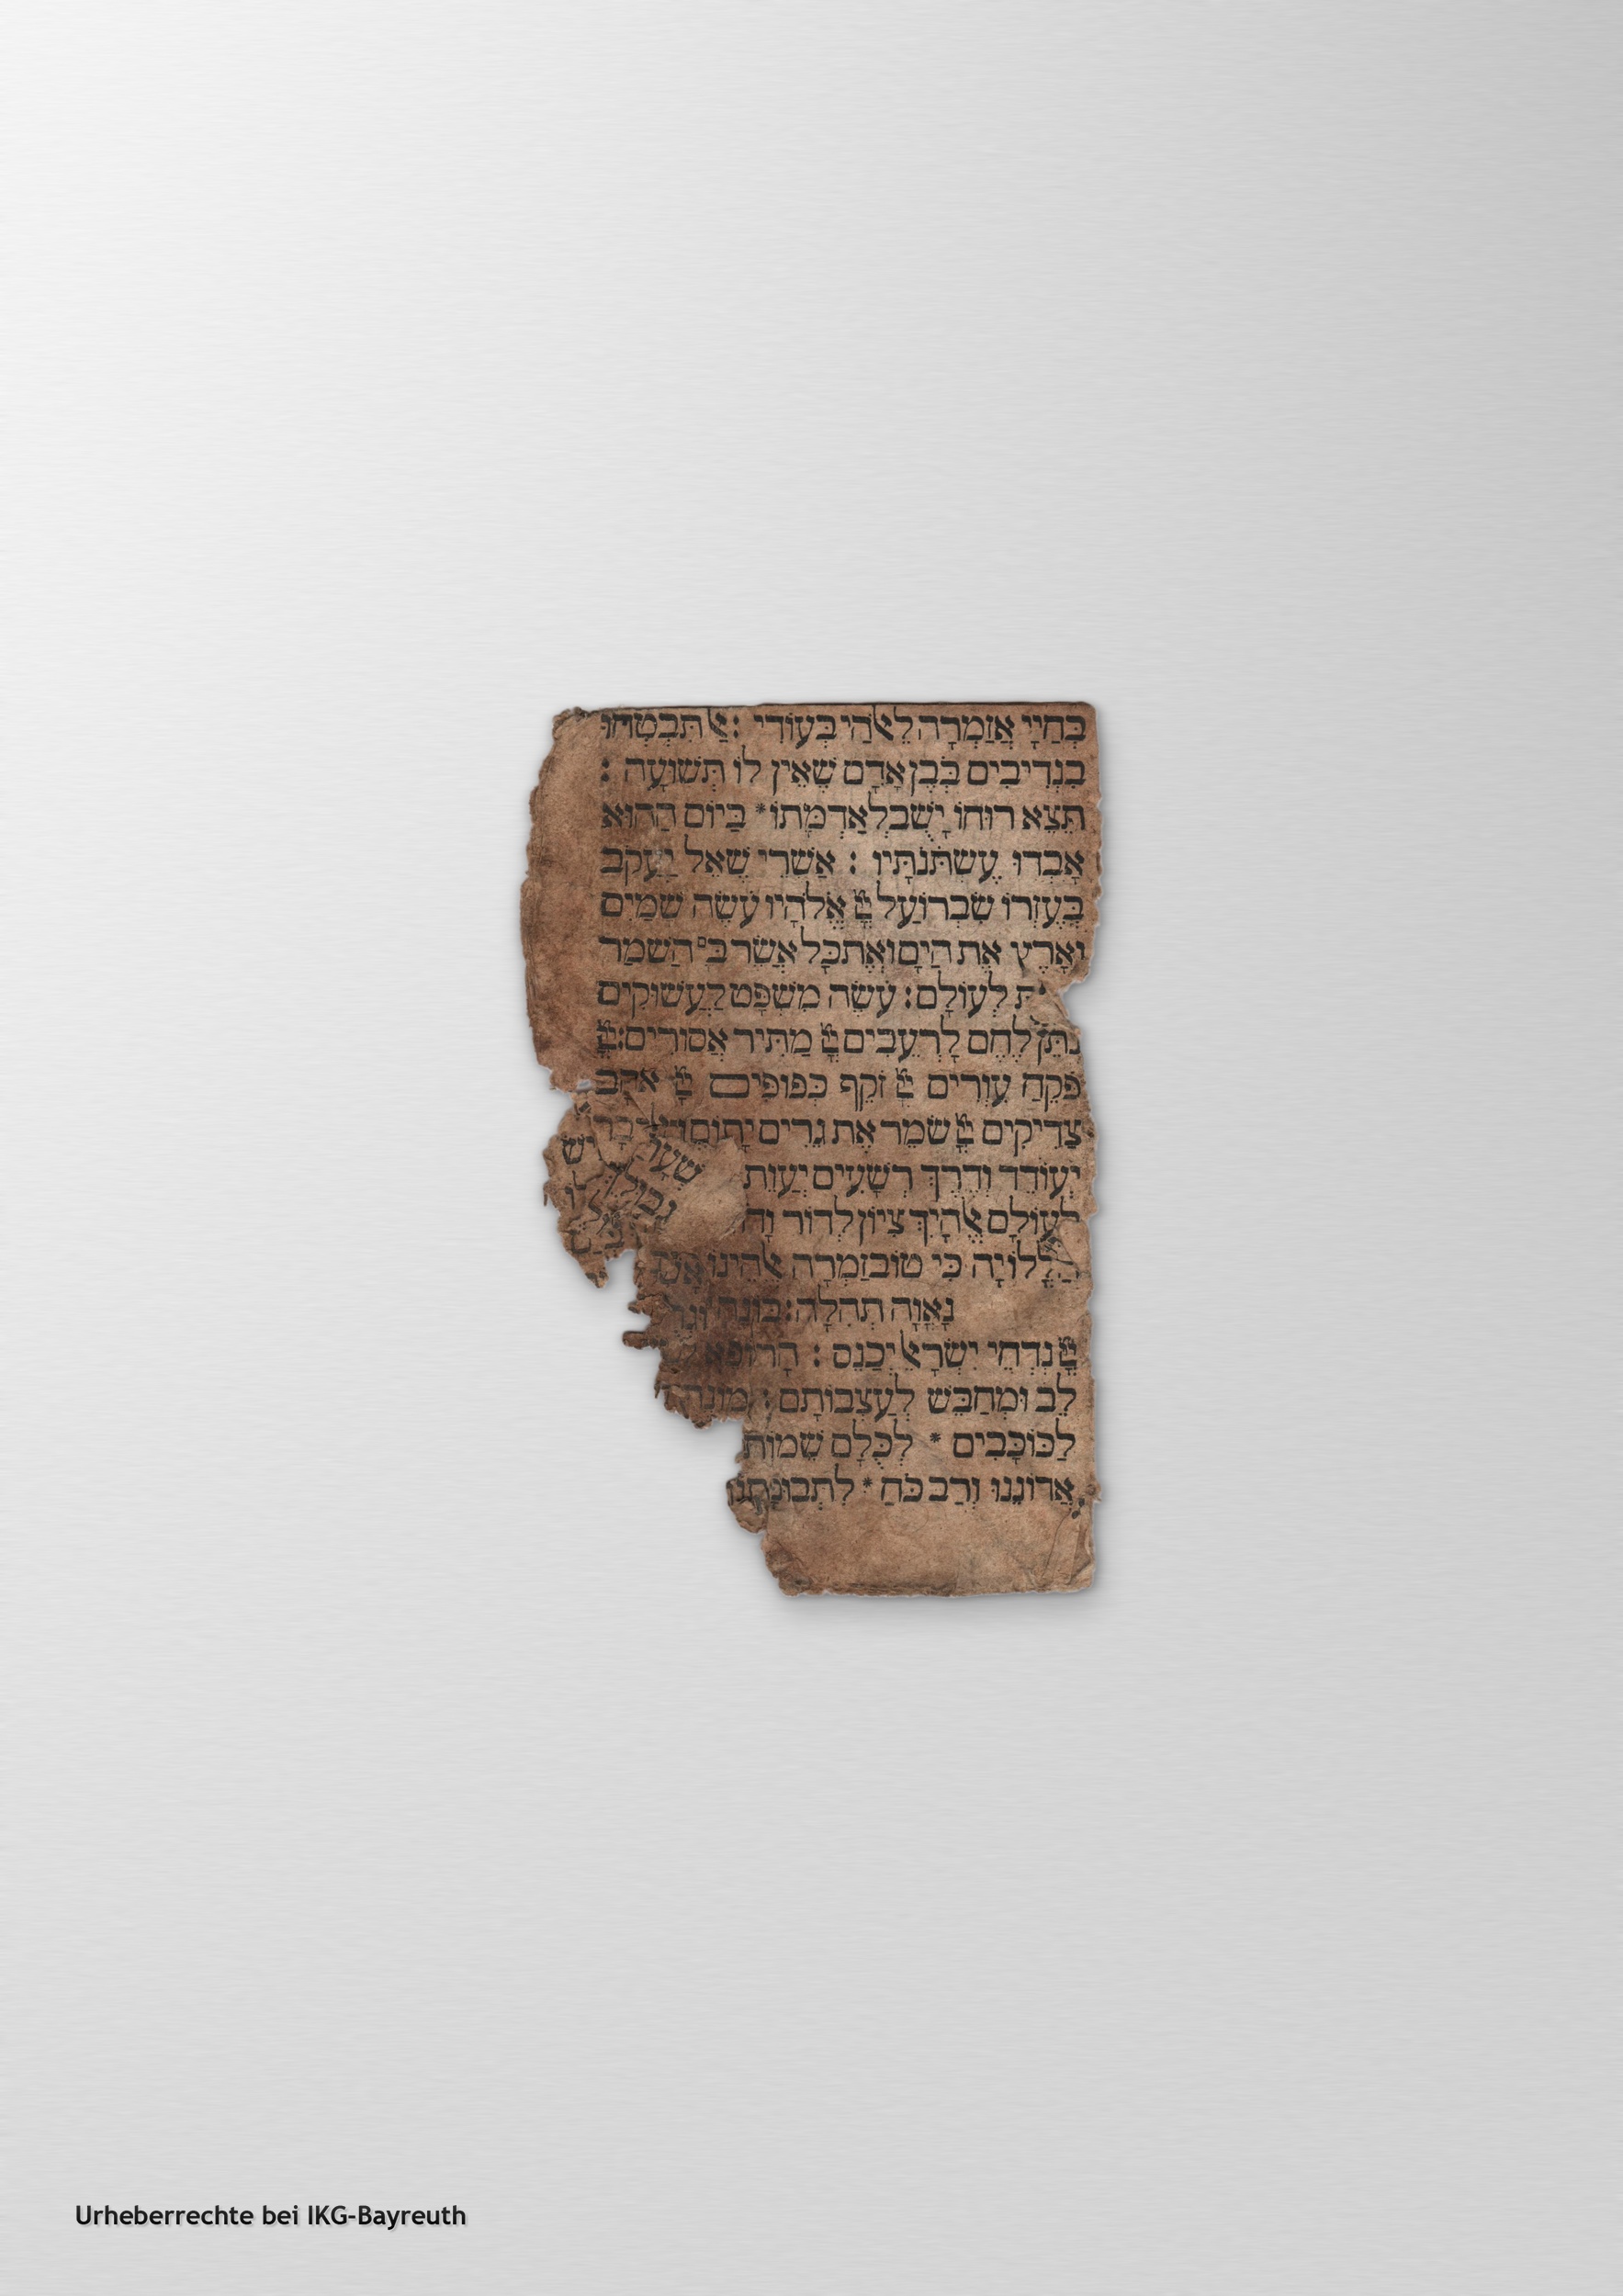 בְּחַיָּי אֲזַמְּרָה לֵאלֹהַי בְּעוֹדִי : אַל תִּבְטְחוּ
בִנְדִיבִים בְּבֶן אָדָם שֶׁאֵין לוֹ תְּשׁוּעָה :
תֵּצֵא רוּחוֹ יָשֻׁב לְאַדְמָתוֹ * בַּיּוֹם הַהוּא
אָבְדוּ עֶשְׁתֹּנֹתָיו : אַשְׁרֵי שֶׁאֵל יַעֲקֹב
בְּעֶזְרוֹ שִׂבְרוֹ עַל יְיָ אֱלֹהָיו עֹשֶׂה שָׁמַיִם
וָאָרֶץ אֶת הַיָּם וְאֶת כָּל אֲשֶׁר בָּם הַשֹּׁמֵר
לְעוֹלָם : עֹשֶׂה מִשְׁפָּט לַעֲשׁוּקִים
נֹתֵן לֶחֶם לָרְעֵבִים יְיָ מַתִּיר אֲסוּרִים : יְיָ
פֹּקֵחַ עִוְרִים יְיָ זֹקֵף כְּפוּפִים יְיָ אֹהֵב
צַדִּיקִים יְיָ שֹׁמֵר אֶת גֵּרִים יָתוֹם
יְעוֹדֵד וְדֶרֶךְ רְשָׁעִים יְעַוֵּת
לְעוֹלָם אֱלֹהַיִךְ צִיּוֹן לְדוֹר
הַלְלוּיָהּ כִּי טוֹב זַמְּרָה אֱלֹהֵינוּ
נָאוָה תְהִלָּה : בּוֹנֵה
יְיָ נִדְחֵי יִשְׂרָאֵל יְכַנֵּס : הָרוֹפֵא
לֵב וּמְחַבֵּשׁ לְעַצְּבוֹתָם : מוֹנֶה
לַכּוֹכָבִים * לְכֻלָּם שֵׁמוֹת
אֲדוֹנֵנוּ וְרַב כֹּחַ * לִתְבוּנָתוֹ
Urheberrechte bei IKG-Bayreuth